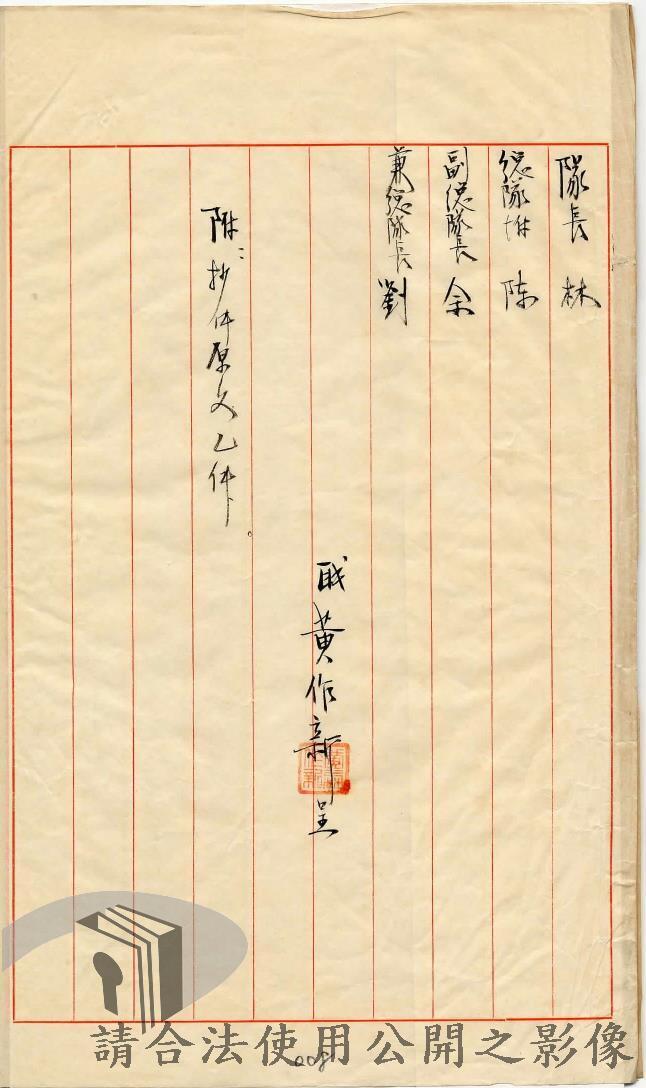 隊長 林
總隊附 陈
副總隊長 余
兼總隊長 劉
職 黃作新 呈
附：抄件原文乙件。
請合法使用公開之影像